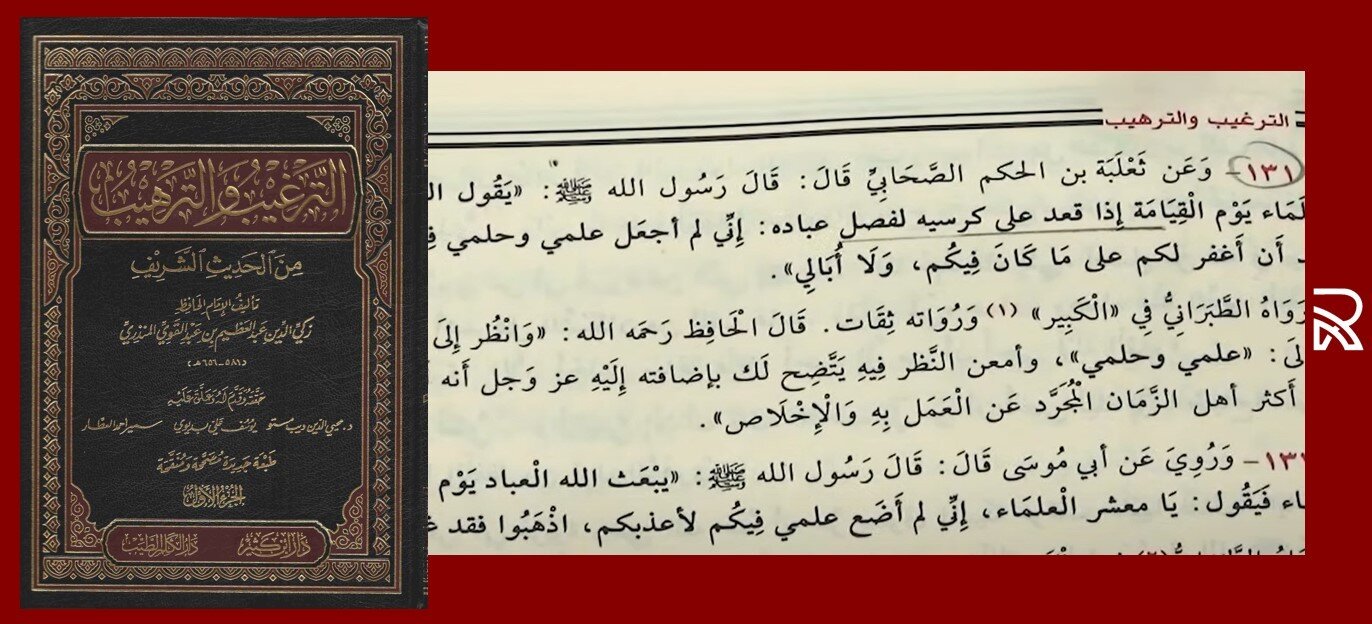 الترغيب والترهيب
من الحديث الشريف
تأليف الإمام الحافظ
زكي الدين عبد العظيم بن عبد القوي المنذري
(٥٨١ - ٦٥٦ هـ)
حققه وقدم له وعلق عليه
د. محيي الدين ديب مستو يوسف علي بديوي سمير أحمد العطار
طبعة جديدة مصححة ومنقحة
الجزء الأول
دار ابن كثير دار الكلم الطيب
الترغيب والترهيب
١٣١ - وَعَن ثَعْلَبَة بن الحكم الصَّحَابِيِّ قَالَ: قَالَ رَسُول الله ﷺ: «يَقُول
يَوْم الْقِيَامَة إِذا قعد على كرسيه لفصل عباده: إِنِّي لم أجعَل علمي وحلمي
أَن أَغفر لكم على مَا كَانَ فِيكُم، وَلَا أُبَالِي».
رَوَاهُ الطَّبَرَانِيُّ فِي «الْكَبِير» (١) وَرُوَاته ثِقَات. قَالَ الْحَافِظ رَحمَه الله: «وَانْظُر إِلَى
«علمي وحلمي»، وأمعن النَّظر فِيهِ يَتَّضِح لَك بإضافته إِلَيْهِ عز وَجل أَنه
أَكثر أهل الزَّمَان الْمُجَرَّد عَن الْعَمَل بِهِ وَالْإِخْلَاص».
وَرُوِيَ عَن أبي مُوسَى قَالَ: قَالَ رَسُول الله ﷺ: «يبْعَث الله الْعباد يَوْم
فَيَقُول: يَا معشر الْعلمَاء، إِنِّي لم أَضَع علمي فِيكُم لأعذبكم، اذْهَبُوا فقد